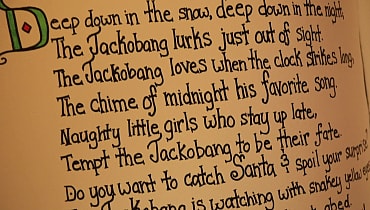 Deep down in the snow, deep down in the night,
The Jackobang lurks just out of sight.
The Jackobang loves when the clock strikes long,
The chime of midnight his favorite song.
Naughty little girls who stay up late,
Tempt the Jackobang to be their fate.
Do you want to catch Santa & spoil your surprise?
Jackobang is watching with snakey yellow eyes